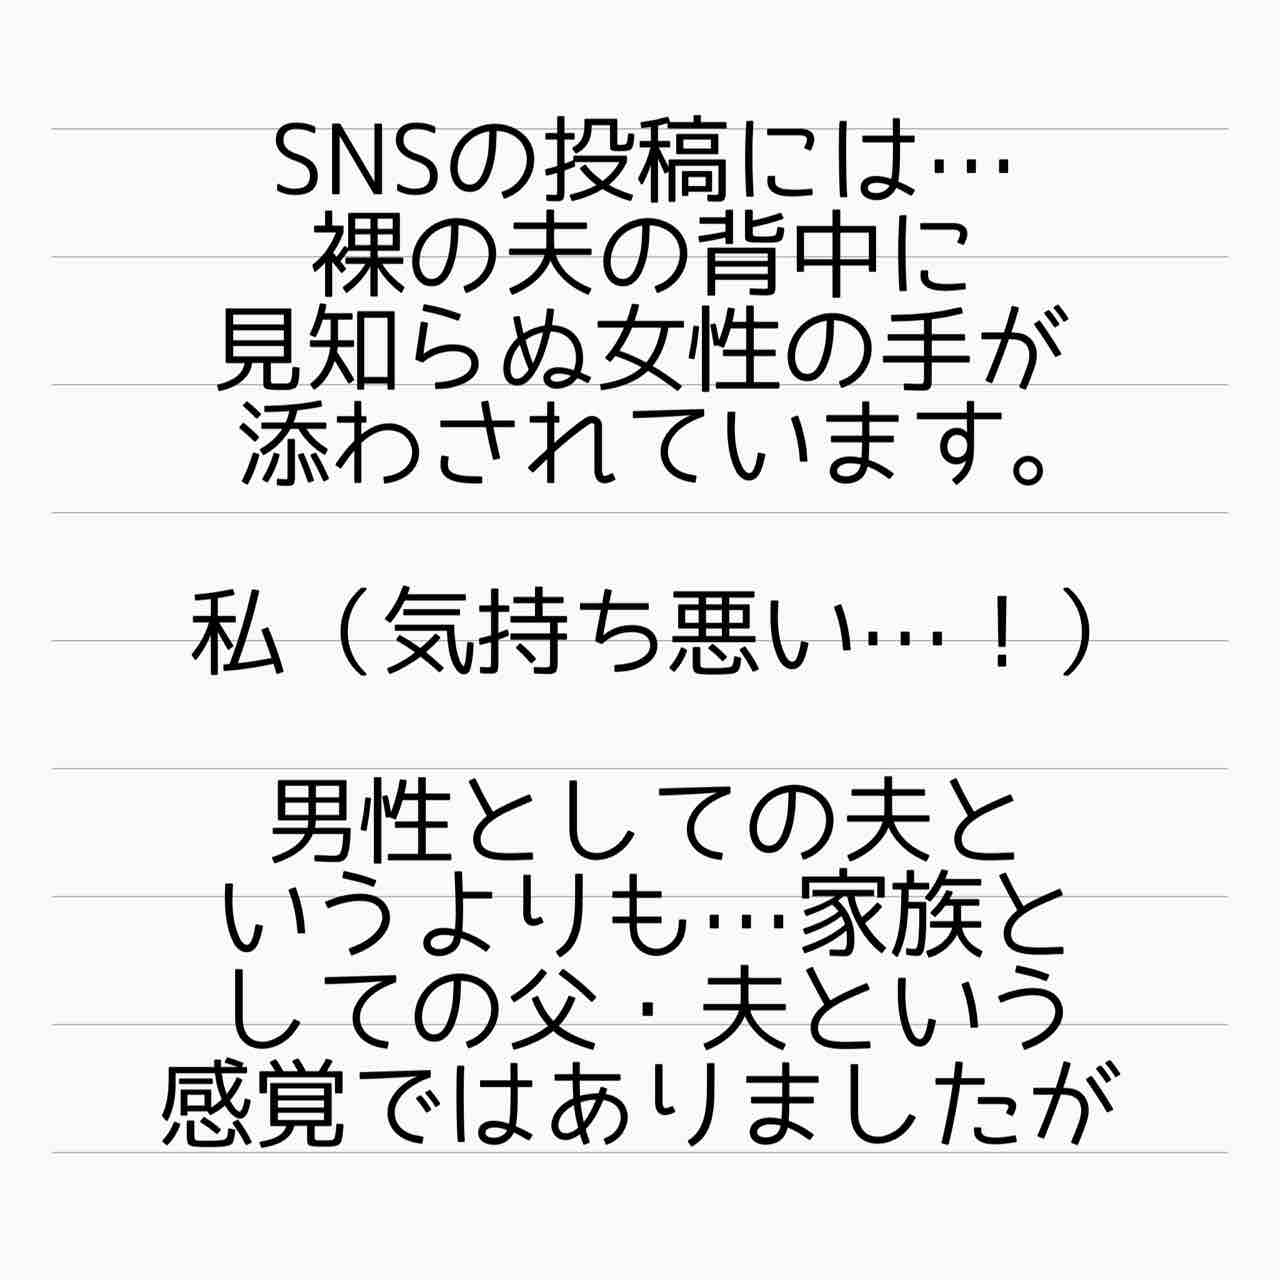 SNSの投稿には…
裸の夫の背中に
見知らぬ女性の手が
添わされています。
私（気持ち悪い…！）
男性としての夫と
いうよりも…家族と
しての父・夫という
感覚ではありましたが